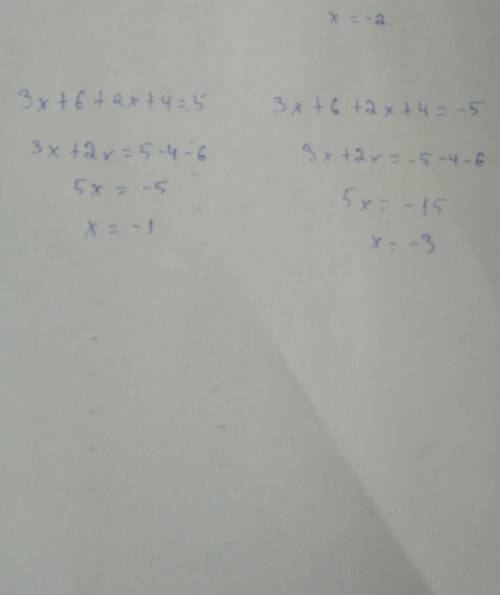 x = -2
3x + 6 + 2x + 4 = 5
3x + 2x = 5 - 4 - 6
5x = -5
x = -1
3x + 6 + 2x + 4 = -5
3x + 2x = -5 - 4 - 6
5x = -15
x = -3